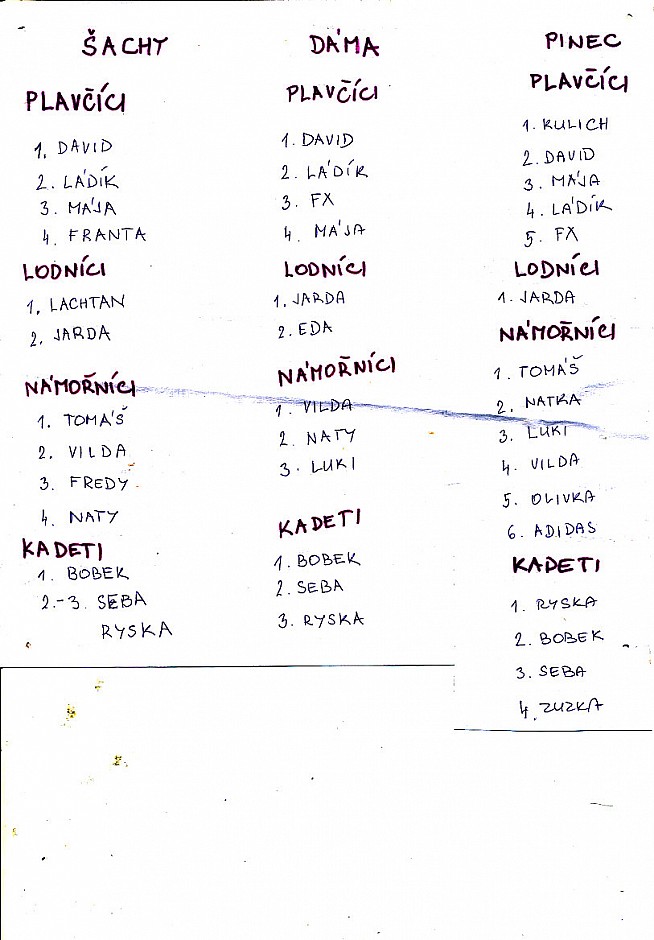 ŠACHY
PLAVČÍCI
1. DAVID
2. LÁDÍK
3. MÁJA
4. FRANTA
LODNÍCI
1. LACHTAN
2. JARDA
NÁMOŘNÍCI
1. TOMÁŠ
2. VILDA
3. FREDY
4. NATY
KADETI
1. BOBEK
2.-3. SEBA
RYSKA
DÁMA
PLAVČÍCI
1. DAVID
2. LÁDÍK
3. FX
4. MÁJA
LODNÍCI
1. JARDA
2. EDA
NÁMOŘNÍCI
1. VILDA
2. NATY
3. LUKI
KADETI
1. BOBEK
2. SEBA
3. RYSKA
PINEC
PLAVČÍCI
1. KULICH
2. DAVID
3. MÁJA
4. LÁDÍK
5. FX
LODNÍCI
1. JARDA
NÁMOŘNÍCI
1. TOMÁŠ
2. NATKA
3. LUKI
4. VILDA
5. OLIVKA
6. ADIDAS
KADETI
1. RYSKA
2. BOBEK
3. SEBA
4. ZUZKA